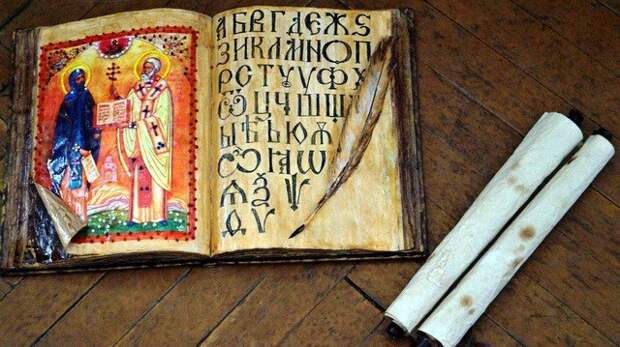 АБВГДЕЖЅ
ЗИКЛМНОП
РСТУѸФХ
ѾЦЧШЩ
ЫѢЪЮѪ
ѠѨ
ѦѮѰ
ѲѴ